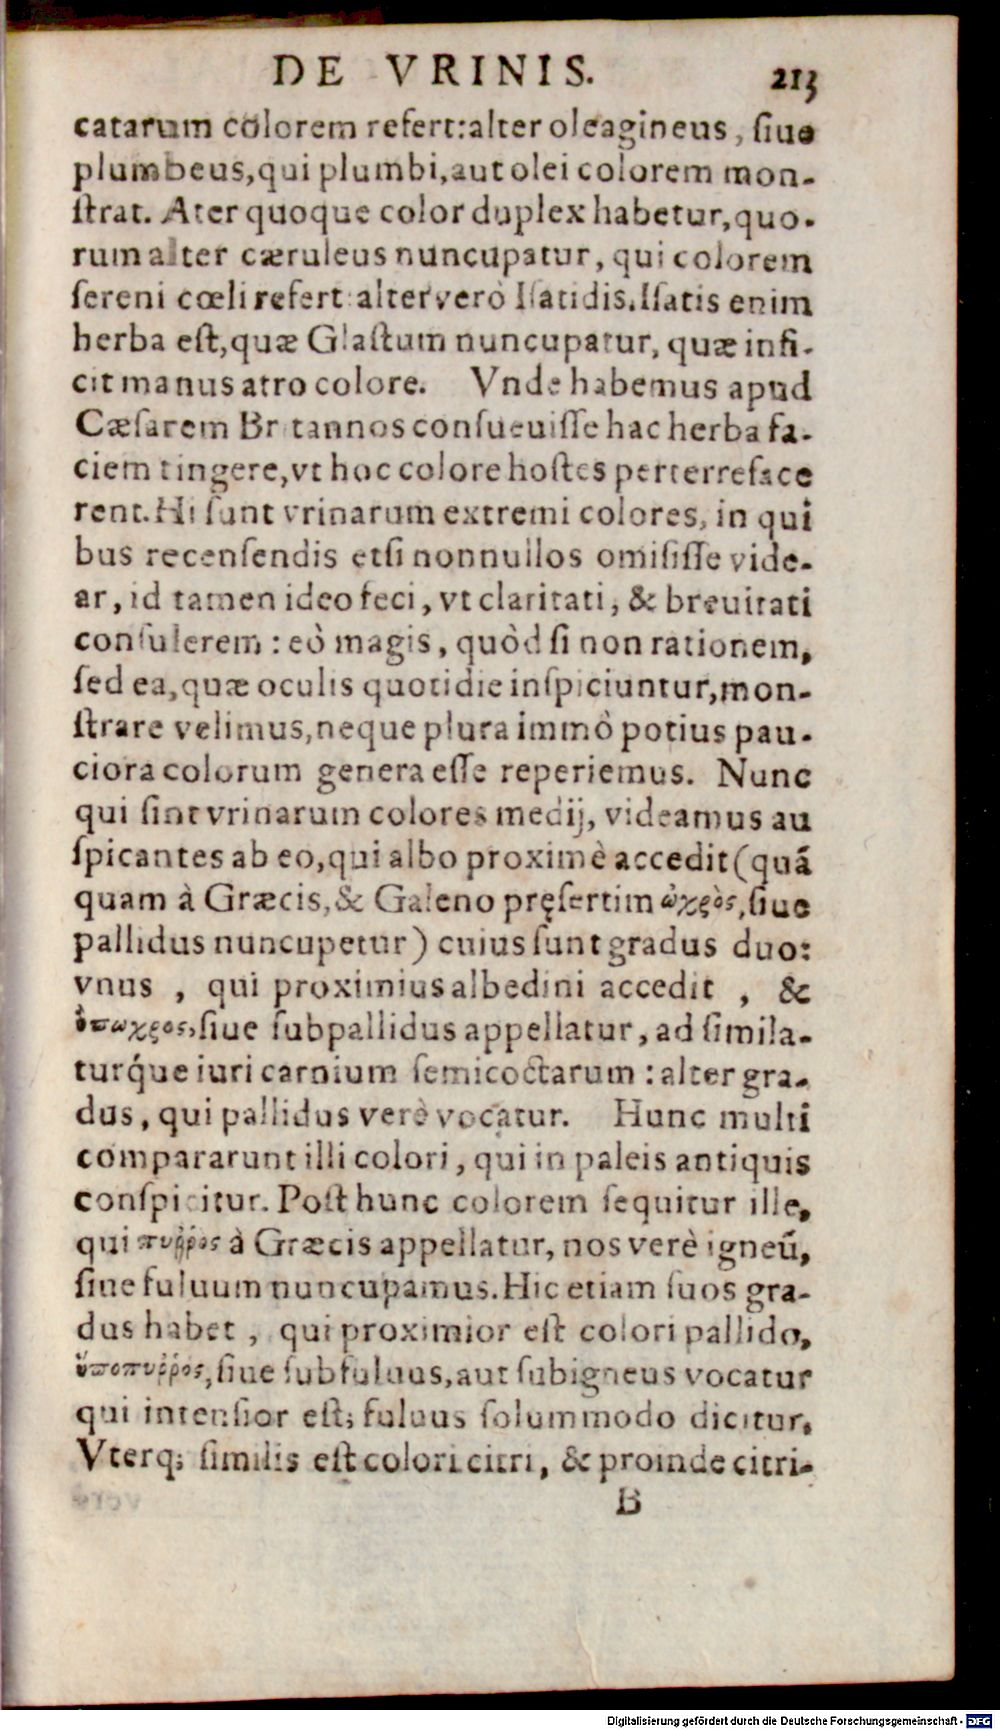 DE VRINIS. 213
catarum colorem refert: alter oleagineus, ſiue
plumbeus, qui plumbi, aut olei colorem mon-
ſtrat. Ater quoque color duplex habetur, quo-
rum alter cæruleus nuncupatur, qui colorem
ſereni cœli refert: alter verò Iſatidis. Iſatis enim
herba eſt, quæ Glaſtum nuncupatur, quæ infi-
cit manus atro colore. Vnde habemus apud
Cæſarem Britannos conſueuiſſe hac herba fa-
ciem tingere, vt hoc colore hoſtes perterreface
rent. Hi ſunt vrinarum extremi colores, in qui
bus recenſendis etſi nonnullos omiſiſſe vide-
ar, id tamen ideo feci, vt claritati, & breuitati
conſulerem: eò magis, quòd ſi non rationem,
ſed ea, quæ oculis quotidie inſpiciuntur, mon-
ſtrare velimus, neque plura immò potius pau-
ciora colorum genera eſſe reperiemus. Nunc
qui ſint vrinarum colores medij, videamus au
ſpicantes ab eo, qui albo proximè accedit (quā
quam à Græcis, & Galeno pręſertim ὠχρὸς, ſiue
pallidus nuncupetur) cuius ſunt gradus duo:
vnus, qui proximius albedini accedit, &
ὕπωχρος, ſiue ſubpallidus appellatur, ad ſimila-
turq́ue iuri carnium ſemicoctarum: alter gra-
dus, qui pallidus verè vocatur. Hunc multi
compararunt illi colori, qui in paleis antiquis
conſpicitur. Poſt hunc colorem ſequitur ille,
qui πυῤῥὸς à Græcis appellatur, nos verè igneū,
ſiue fuluum nuncupamus. Hic etiam ſuos gra-
dus habet, qui proximior eſt colori pallido,
ὕποπυῤῥος, ſiue ſubfuluus, aut ſubigneus vocatur
qui intenſior eſt; fuluus ſolummodo dicitur,
Vterq; ſimilis eſt colori citri, & proinde citri-
B
Digitalisierung gefördert durch die Deutsche Forschungsgemeinschaft - DFG